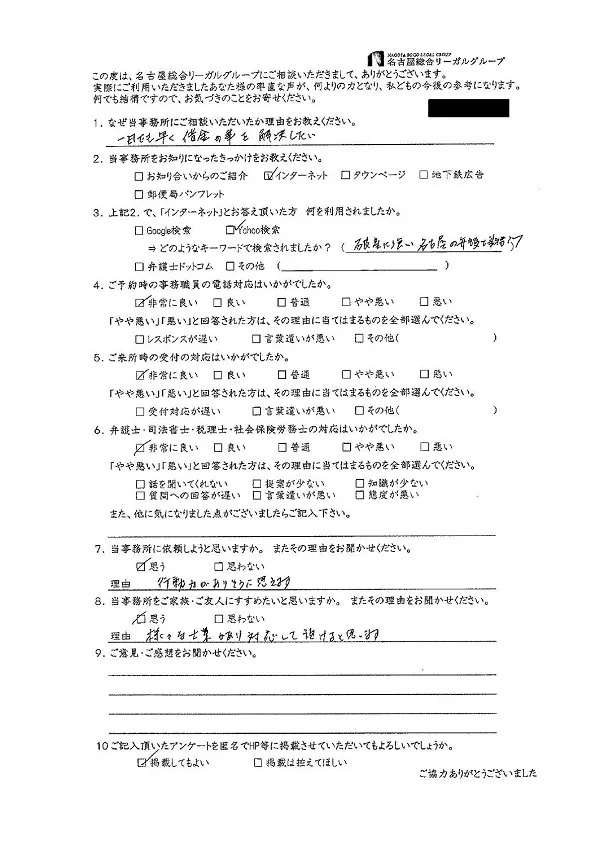 NAGOYA SOGO LEGAL GROUP
名古屋総合リーガルグループ
この度は、名古屋総合リーガルグループにご相談いただきまして、ありがとうございます。
実際にご利用いただきましたあなた様の率直な声が、何よりの力となり、私どもの今後の参考になります。
何でも結構ですので、お気づきのことをお寄せください。
1. なぜ当事務所にご相談いただいたか理由をお教えください。
一日でも早く 借金の事を 解決したい
2. 当事務所をお知りになったきっかけをお教えください。
□お知り合いからのご紹介 ☑インターネット □タウンページ □地下鉄広告
□郵便局パンフレット
3. 上記2. で、「インターネット」とお答え頂いた方 何を利用されましたか。
□Google検索 ☑Yahoo検索
⇒ どのようなキーワードで検索されましたか? ( に強い 名古屋の
□弁護士ドットコム □その他 ( )
4. ご予約時の事務職員の電話対応はいかがでしたか。
☑非常に良い □良い □普通 □やや悪い □悪い
「やや悪い」「悪い」と回答された方は、その理由に当てはまるものを全部選んでください。
□レスポンスが遅い □言葉遣いが悪い □その他( )
5. ご来所時の受付の対応はいかがでしたか。
☑非常に良い □良い □普通 □やや悪い □悪い
「やや悪い」「悪い」と回答された方は、その理由に当てはまるものを全部選んでください。
□受付対応が遅い □言葉遣いが悪い □その他( )
6. 弁護士・司法書士・税理士・社会保険労務士の対応はいかがでしたか。
☑非常に良い □良い □普通 □やや悪い □悪い
「やや悪い」「悪い」と回答された方は、その理由に当てはまるものを全部選んでください。
□話を聞いてくれない □提案が少ない □知識が少ない
□質問への回答が遅い □言葉遣いが悪い □態度が悪い
また、他に気になりました点がございましたらご記入下さい。
7. 当事務所に依頼しようと思いますか。 またその理由をお聞かせください。
☑思う □思わない
理由 行動力がありそうに思えます
8. 当事務所をご家族・ご友人にすすめたいと思いますか。 またその理由をお聞かせください。
☑思う □思わない
理由 様々な士業があり対応して頂けると思います
9. ご意見・ご感想をお聞かせください。
10 ご記入頂いたアンケートを匿名でHP等に掲載させていただいてもよろしいでしょうか。
☑掲載してもよい □掲載は控えてほしい
ご協力ありがとうございました